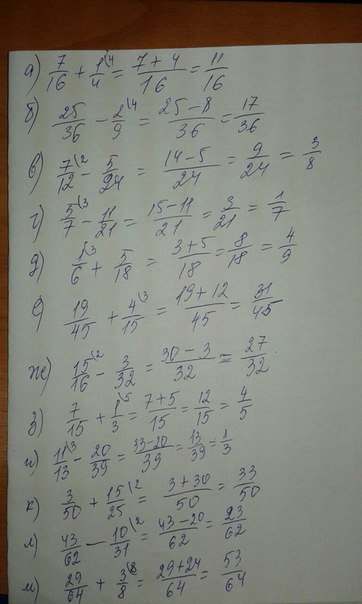 а) 7/16 + 1/4 \4 = (7+4)/16 = 11/16
б) 25/36 - 2/9 \4 = (25-8)/36 = 17/36
в) 7/12 \2 - 5/24 = (14-5)/24 = 9/24 = 3/8
г) 5/7 \3 - 11/21 = (15-11)/21 = 3/21 = 1/7
д) 1/6 \3 + 5/18 = (3+5)/18 = 8/18 = 4/9
е) 19/45 + 4/15 \3 = (19+12)/45 = 31/45
ж) 15/16 \2 - 3/32 = (30-3)/32 = 27/32.
з) 7/15 + 1/3 \5 = (7+5)/15 = 12/15 = 4/5
и) 11/13 \3 - 20/39 = (33-20)/39 = 13/39 = 1/3
к) 3/50 + 15/25 \2 = (3+30)/50 = 33/50
л) 43/62 - 10/31 \2 = (43-20)/62 = 23/62
м) 29/64 + 3/8 \8 = (29+24)/64 = 53/64